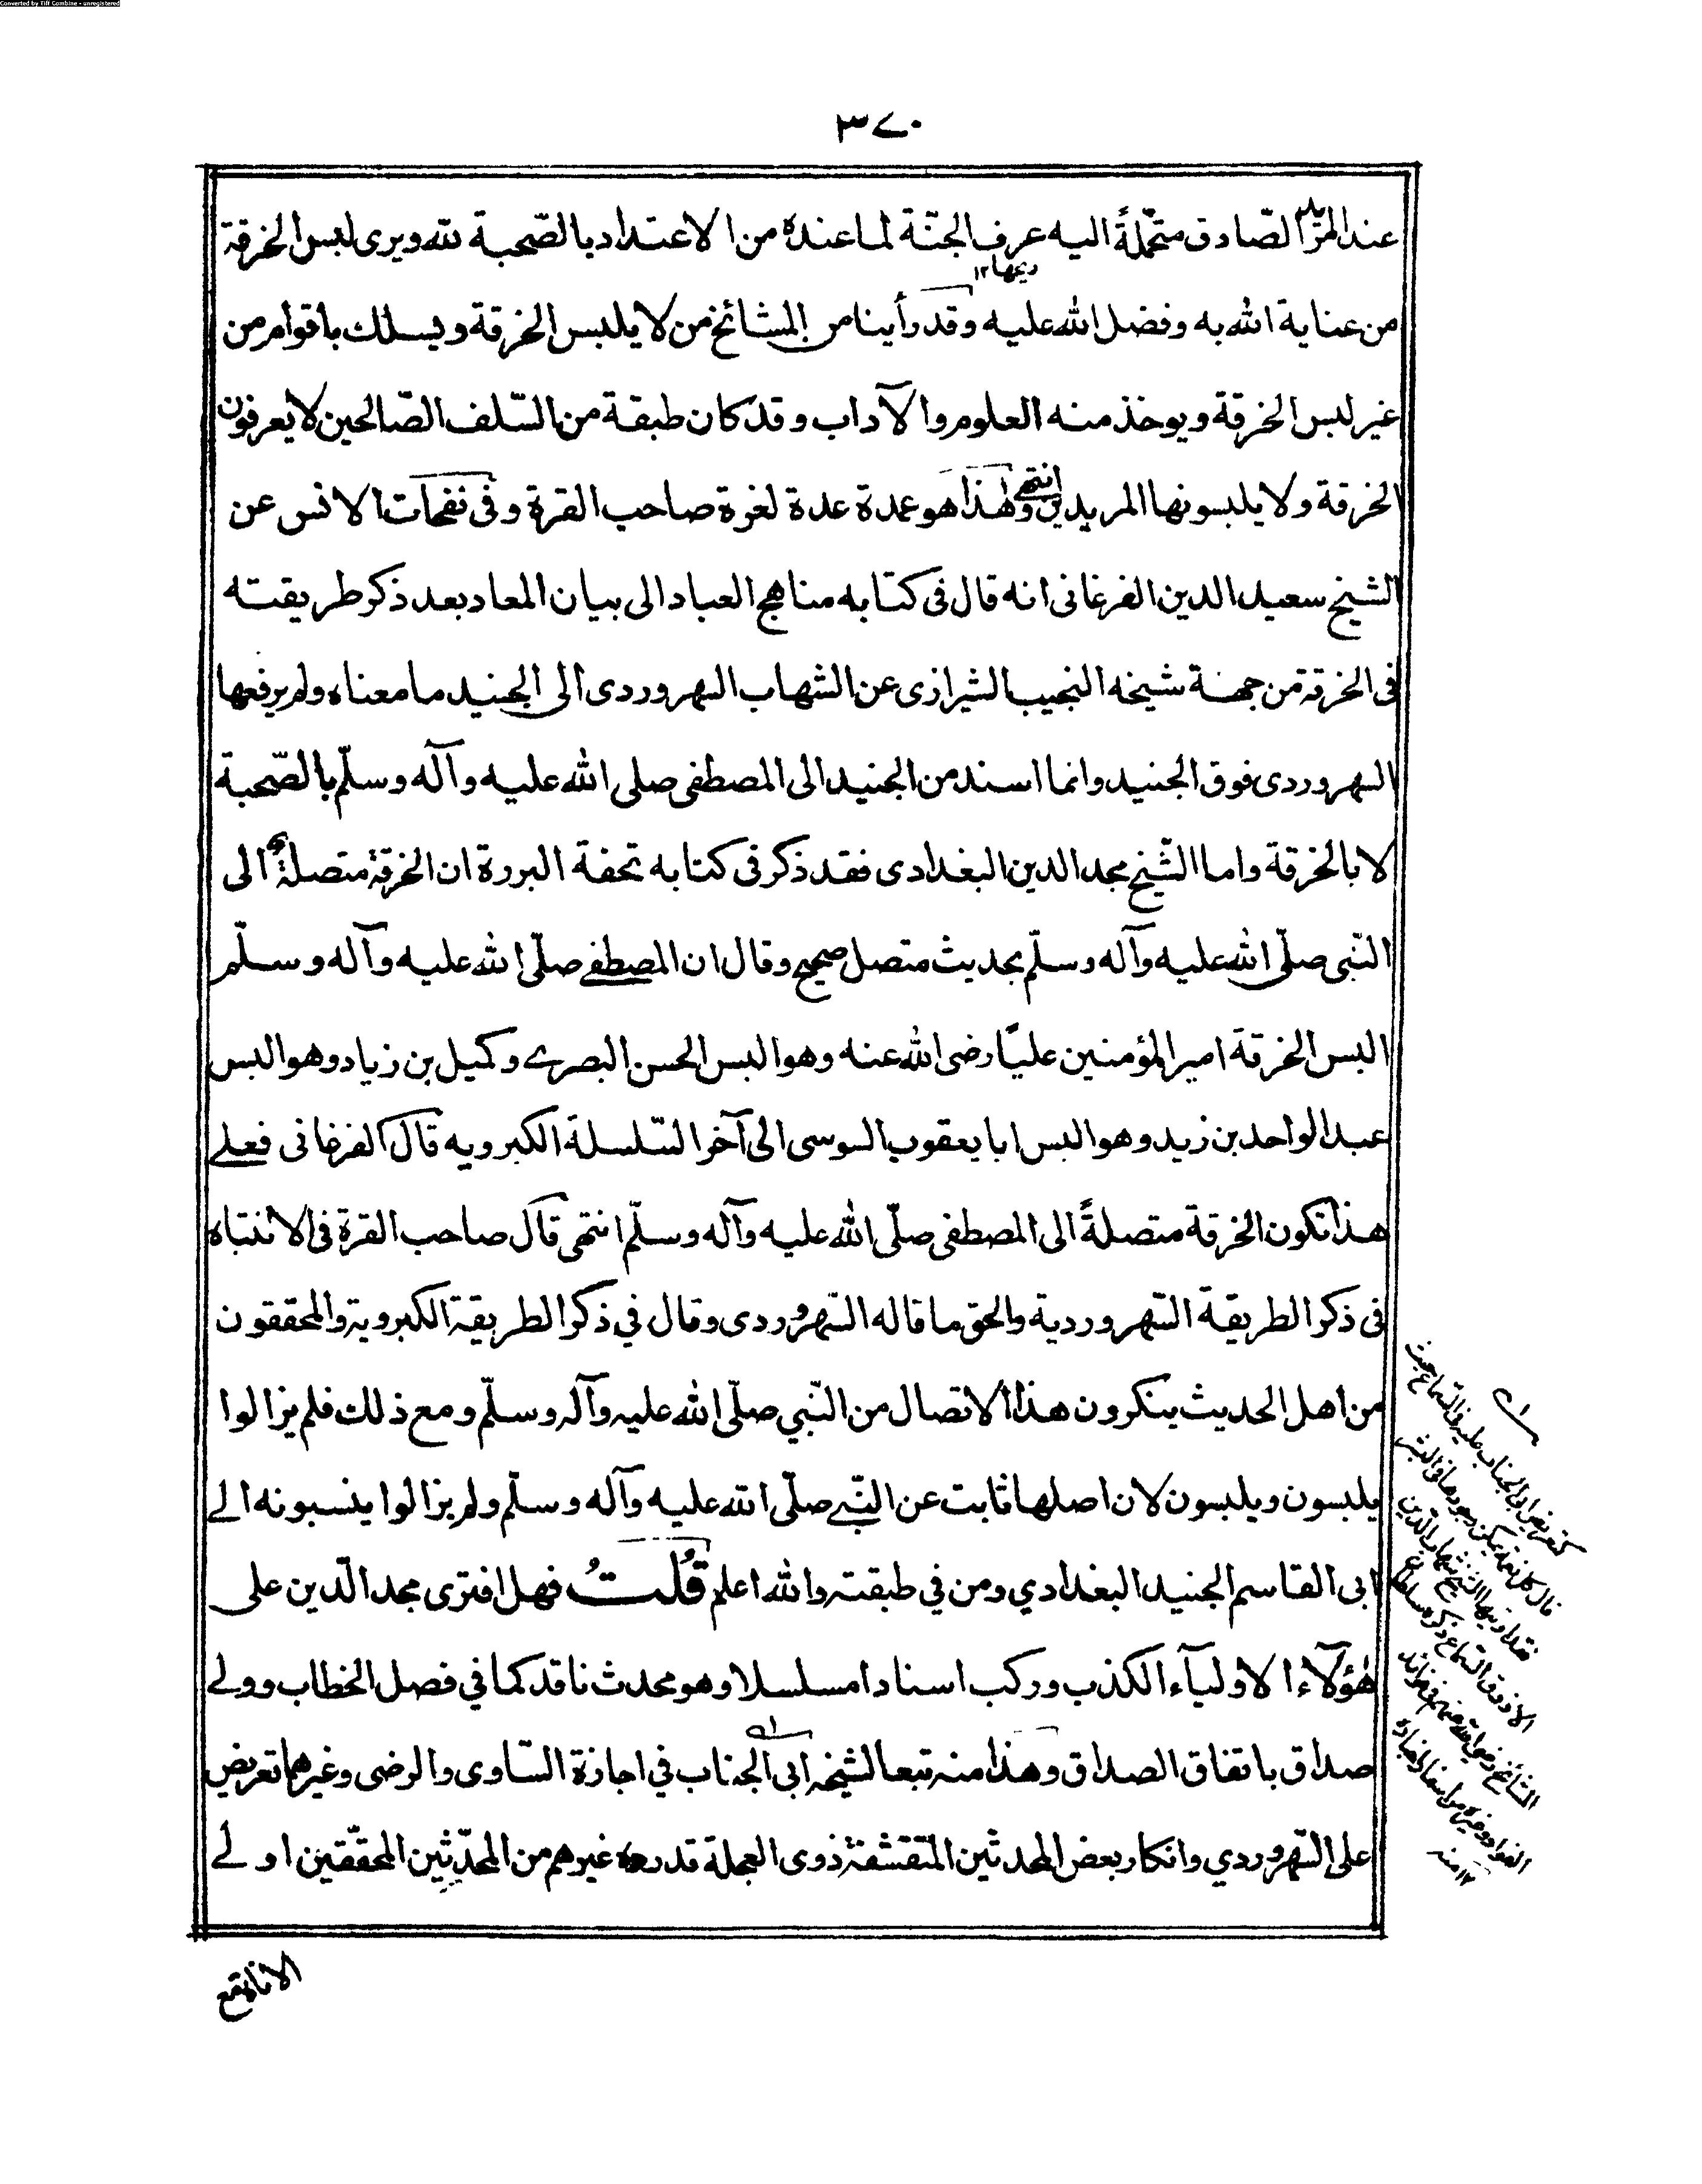 Converted by Tiff Combine - unregistered
٣٧٠
عند المريد الصّادق متحمّلةً اليه عرف الجنّة لما عنده من الاعتداد بالصّحبة لله ويرى لبس الخرقة
ريحها ١٢
من عناية الله به وفضل الله عليه وقد رأينا من المشائخ من لا يلبس الخرقة ويسلك باقوام من
غير لبس الخرقة ويوخذ منه العلوم والآداب وقد كان طبقة من السّلف الصّالحين لا يعرفون
الخرقة ولا يلبسونها المريدين انتهى وهٰذا هو عمدة عدة لغرة صاحب القرة وفى نفحات الانس عن
الشيخ سعيد الدين الفرغانى انه قال فى كتابه مناهج العباد الى بيان المعاد بعد ذكر طريقته
فى الخرقة من جهة شيخه النجيب الشيرازى عن الشهاب السهروردى الى الجنيد ما معناه ولم يرفعها
السهروردى فوق الجنيد وانما اسند من الجنيد الى المصطفى صلى الله عليه وآله وسلّم بالصّحبة
لا بالخرقة واما الشّيخ مجد الدين البغدادى فقد ذكر فى كتابه تحفة البررة ان الخرقة متصلة الى
النّبى صلّى الله عليه وآله وسلّم بحديث متصل صحيح وقال ان المصطفے صلّى الله عليه وآله وسلّم
البس الخرقة امير المؤمنين عليّا رضى الله عنه وهو البس الحسن البصرے وكميل بن زياد وهو البس
عبد الواحد بن زيد وهو البس ابا يعقوب السوسى الى آخر السّلسلة الكبرويه قال الفرغانى فعلے
هذا تكون الخرقة متصلةً الى المصطفى صلّى الله عليه وآله وسلّم انتهى قال صاحب القرة فى الانتباه
فى ذكر الطريقة السّهروردية والحق ما قاله السّهروردى وقال في ذكر الطريقة الكبروية والمحققون
من اهل الحديث ينكرون هذا الاتصال من النّبي صلّى الله عليه وآله وسلّم ومع ذلك فلم يزالوا
يلبسون ويلبسون لان اصلها ثابت عن النّبے صلّى الله عليه وآله وسلّم ولم يزالوا ينسبونه الے
ابى القاسم الجنيد البغدادي ومن في طبقته والله اعلم قُلتُ فهل افترى مجد الدّين على
هٰؤلآء الاوليآء الكذب وركب اسنادا مسلسلا وهو محدث ناقد كما في فصل الخطاب وولے
صداق باتفاق الصداق وهذا منه تبعا لشيخه ابى الجناب في اجازة السّاوى والرضى وغيرهما تعريض
على السّهروردي وانكار بعض المحدثين المتقشفة ذوى العجلة قد رده غيرهم من المحدّثين المحقّقين اولے
كتعريض ابى الجناب عليه فى السّماع حيث
قال كل نعمة يمكن وجودها فى البشر
فقد اوتيها الشيخ شهاب الدّين
الا ذوق السماع
١٢ منه
الانا نقع